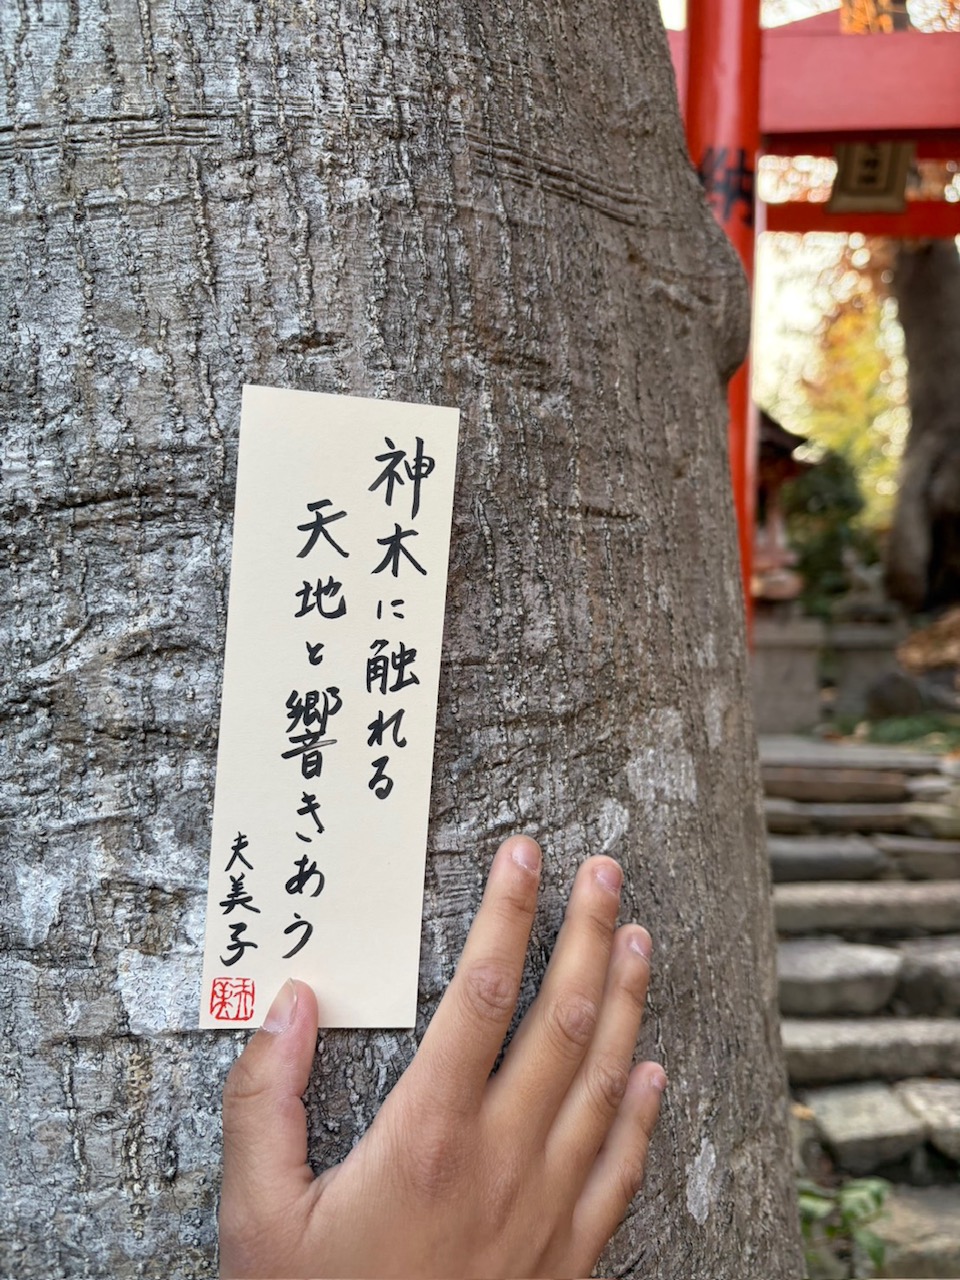 神木に触れる
天地と響きあう
夫美子